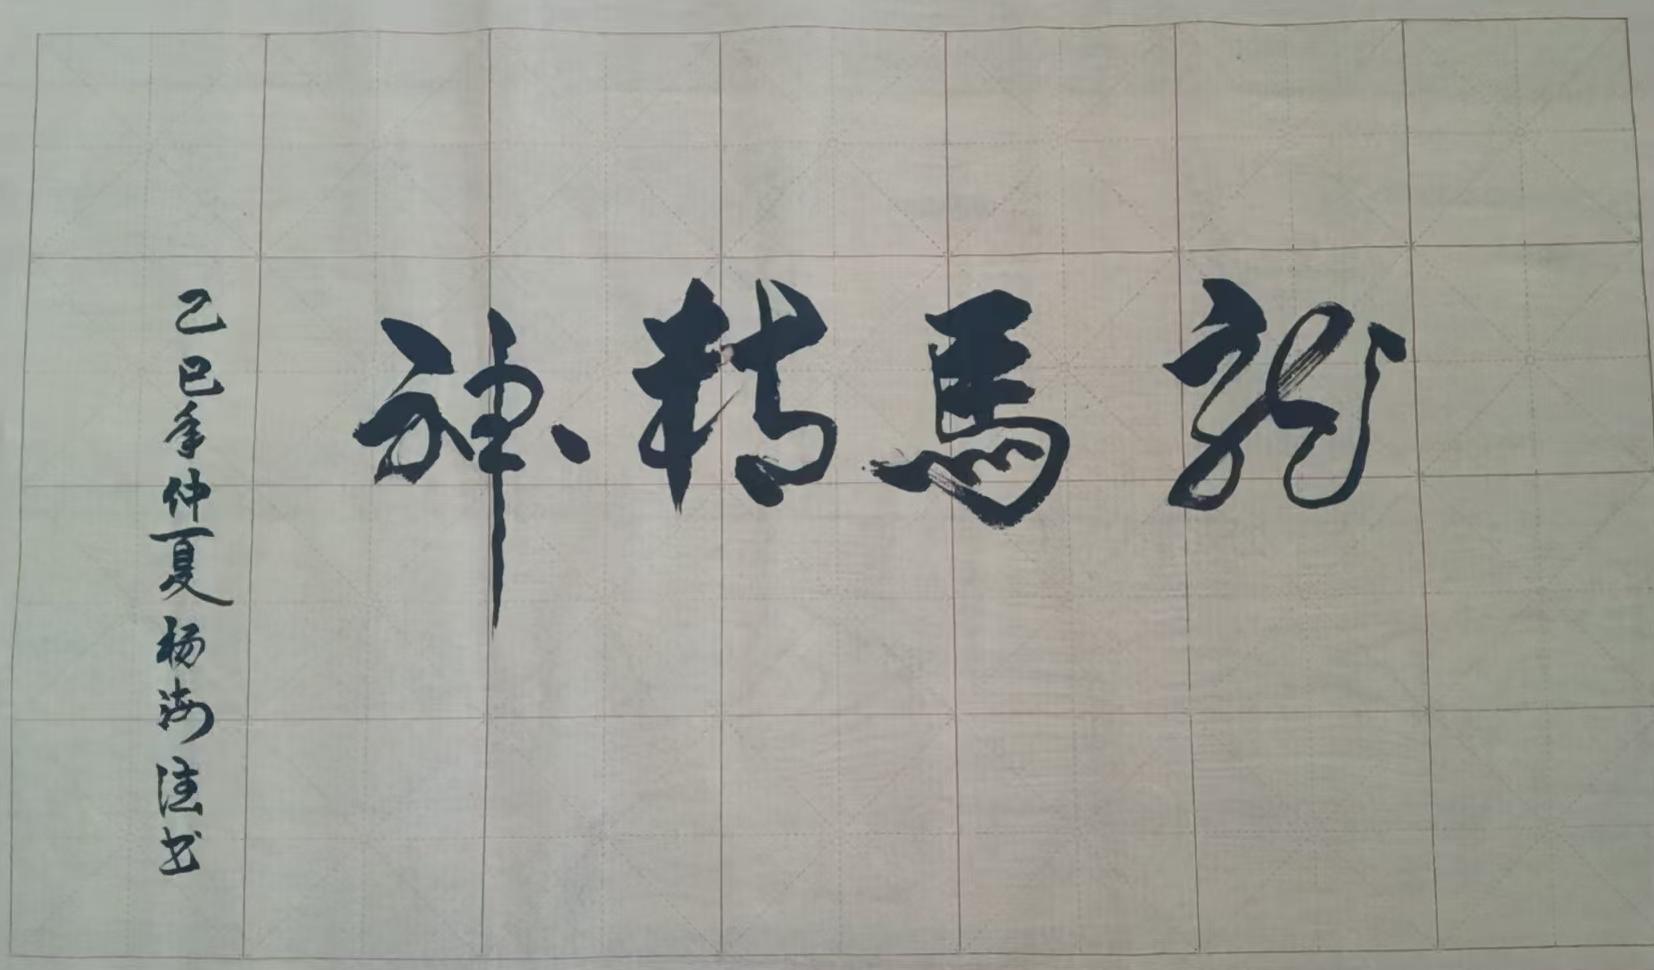 龍馬精神
乙巳年仲夏杨海注书